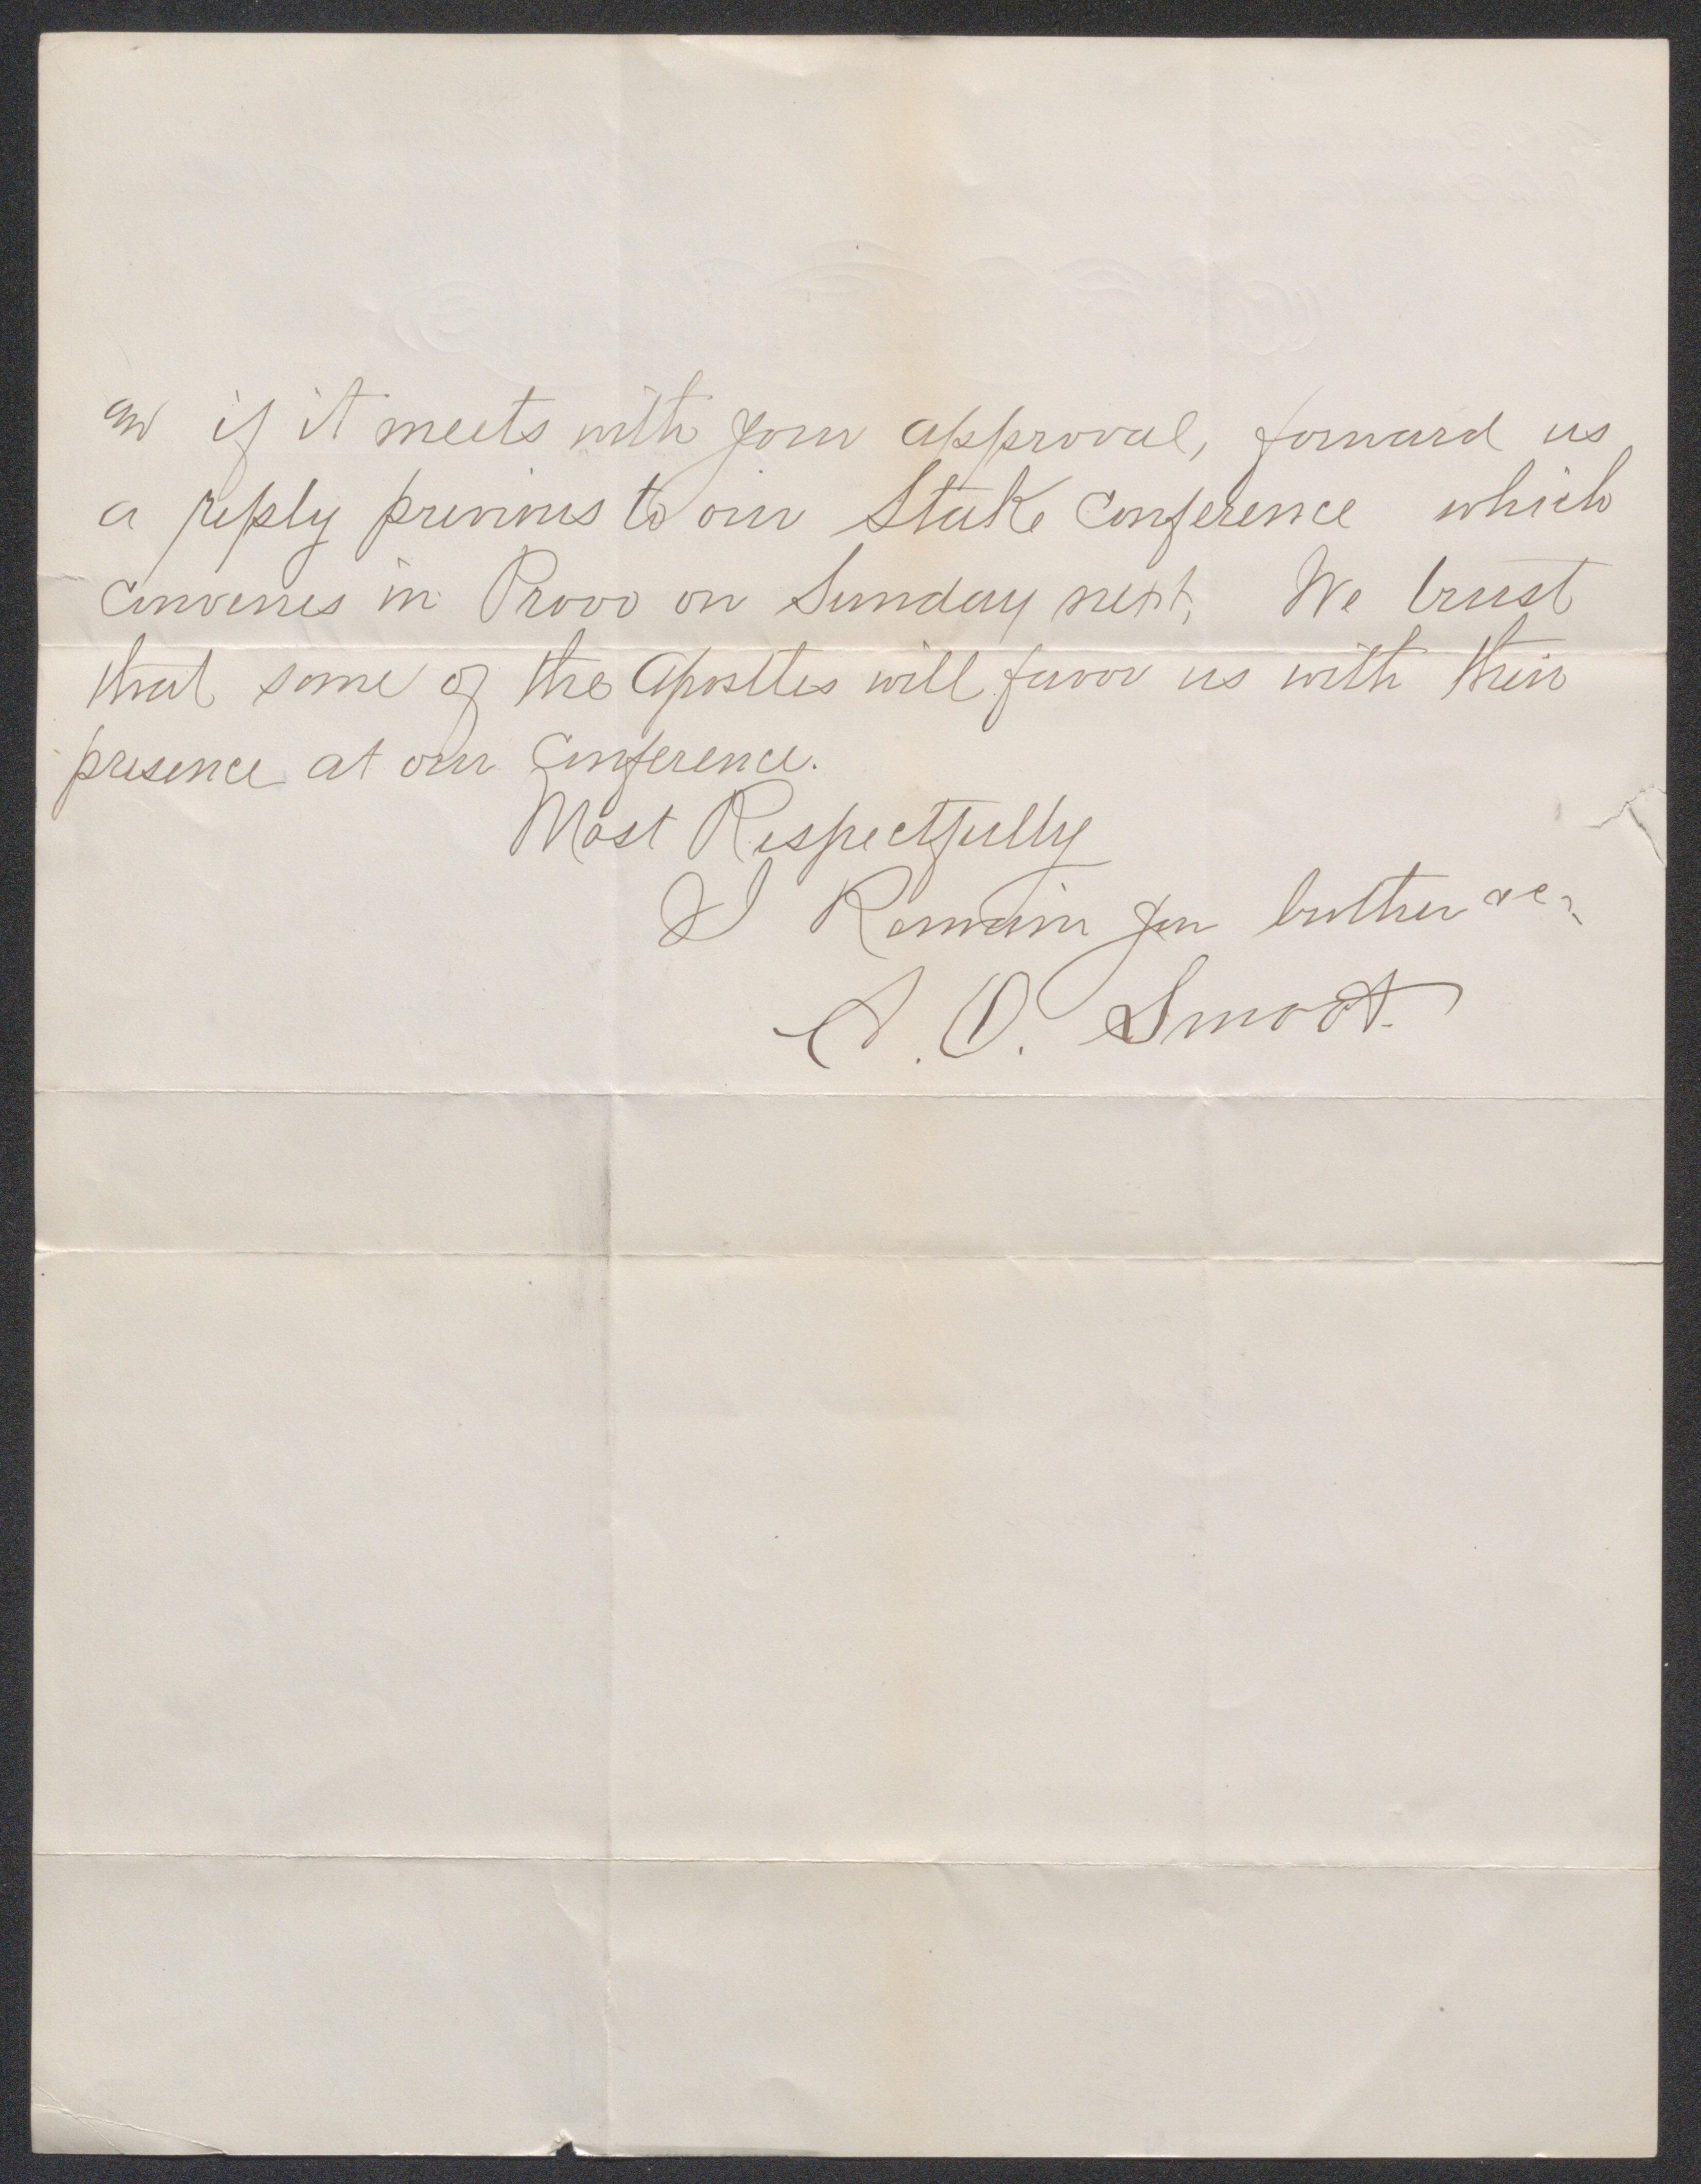 and if it meets with your approval, forward us
a reply previous to our Stake Conference which
convenes in Provo on Sunday next, We trust
that some of the Apostles will favor us with their
presence at our Conference.
Most Respectfully
I Remain your brother &c,
A. O. Smoot.